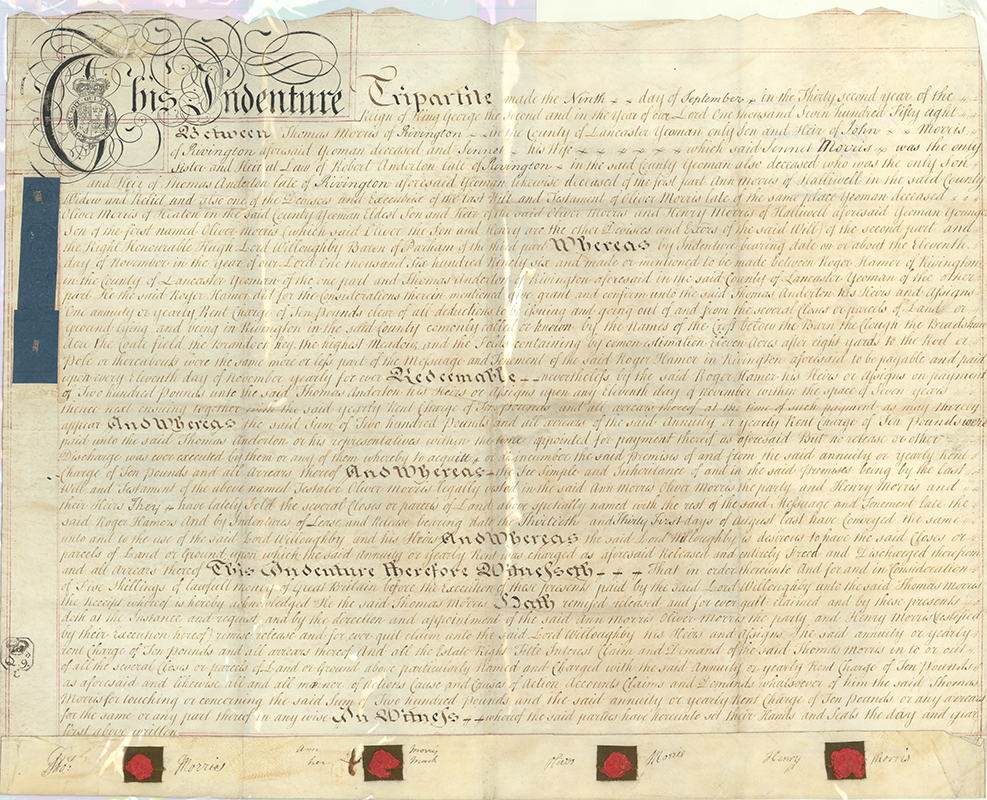 This Indenture Tripartite made the Ninth day of September in the Thirty second year of the
Reign of King George the Second and in the Year of our Lord One thousand Seven hundred Fifty eight
Between Thomas Morris of Rivington in the County of Lancaster Yeoman only Son and Heir of John Morris
of Rivington aforesaid Yeoman deceased and Jennet his Wife which said Jennet Morris was the only
Sister and Heir at Law of Robert Anderton late of Rivington in the said County Yeoman also deceased who was the only Son
and Heir of Thomas Anderton late of Rivington aforesaid Yeoman likewise deceased of the first part Ann Morris of Halliwell in the said County
Widow and Relict and also one of the Devisees and Executors of the last Will and Testament of Oliver Morris late of the same place Yeoman deceased
Oliver Morris of Heaton in the said County Yeoman Eldest Son and Heir of the said Oliver Morris and Henry Morris of Halliwell aforesaid Yeoman Younger
Son of the first named Oliver Morris (which said Oliver the Son and Henry are the other Devisees and Exors of the said Will) of the second part and
the Right Honourable Hugh Lord Willoughby Baron of Parham of the third part Whereas by Indenture bearing date on or about the Eleventh
day of November in the Year of our Lord One thousand Six hundred Ninety six and made or mentioned to be made between Roger Hamer of Rivington
in the County of Lancaster Yeoman of the one part and Thomas Anderton of Rivington aforesaid in the said County of Lancaster Yeoman of the other
part He the said Roger Hamer Did for the Considerations therein mentioned give grant and confirm unto the said Thomas Anderton his Heirs and Assigns
One annuity or yearly Rent Charge of Ten Pounds clear of all deductions to be issuing and going out of and from the several Closes or parcels of Land or
Ground lying and being in Rivington in the said County comonly called or known by the Names of the Croft below the Barn the Clough the Bradshaw
Acre the Coate field the Branderth Hey the Highest Meadow and the Folds containing by comon estimation Eleven Acres after eight yards to the Rod or
Pole or thereabouts were the same more or less part of the Messuage and Tenement of the said Roger Hamer in Rivington aforesaid to be payable and paid
upon every Eleventh day of November yearly for ever Redeemable nevertheless by the said Roger Hamer his Heirs or Assigns on payment
of Two hundred pounds unto the said Thomas Anderton his Heirs or Assigns upon any Eleventh day of November within the space of Seven Years
thence next ensuing together with the said yearly Rent Charge of Ten pounds and all arrears thereof at the time of such payment as may thereby
appear And Whereas the said Sum of Two hundred Pounds and all arrears of the said Annuity or yearly Rent Charge of Ten Pounds were
paid unto the said Thomas Anderton or his representatives within the time appointed for payment thereof as aforesaid But no release or other
Discharge was ever executed by them or any of them whereby to acquitt or Disencumber the said premises of and from the said annuity or yearly Rent
Charge of Ten Pounds and all arrears thereof And Whereas the Fee Simple and Inheritance of and in the said Premises being by the Last
Will and Testament of the above named Testator Oliver Morris legally vested in the said Ann Morris Oliver Morris the party and Henry Morris and
their Heirs They have lately Sold the several Closes or parcels of Land above specially named with the rest of the said Messuage and Tenement late the
said Roger Hamers And by Indentures of Lease and Release bearing date the Thirtieth and Thirty First days of August last have Conveyed the same
unto and to the use of the said Lord Willoughby and his Heirs And Whereas the said Lord Willoughby is desirous to have the said Closes or
parcels of Land or Ground upon which the said Annuity or Yearly Rent was charged as aforesaid Released and entirely Freed and Discharged therefrom
and all Arrears thereof This Indenture therefore Witnesseth That in order thereinto And for and in Consideration
of Five Shillings of Lawfull money of Great Britain before the Execution of these presents paid by the said Lord Willoughby unto the said Thomas Morris
the Receipt whereof is hereby acknowledged He the said Thomas Morris Hath remised released and for ever quit claimed and by these presents
doth at the Instance and request and by the direction and appointment of the said Ann Morris Oliver Morris the party and Henry Morris (testified
by their Execution hereof) remise release and for ever quit claim unto the said Lord Willoughby his Heirs and Assigns The said annuity or yearly
rent Charge of Ten pounds and all arrears thereof And all the Estate Right Title Interest Claim and Demand of the said Thomas Morris in to or out
of all the several Closes or parcels of Land or Ground above particularly named and Charged with the said Annuity or yearly Rent Charge of Ten Pounds
as aforesaid and likewise all and all manner of Actions Cause and Causes of Action Accounts Claims and Demands whatsoever of him the said Thomas
Morris for touching or concerning the said Sum of Two hundred Pounds and the said annuity or yearly Rent Charge of Ten Pounds or any arrears
for the same or any part thereof in any wise In Witness whereof the said parties have hereunto set their Hands and Seals the day and year
first above written
Thos. Morris
Ann Morris
her mark
Morris
Henry Morris